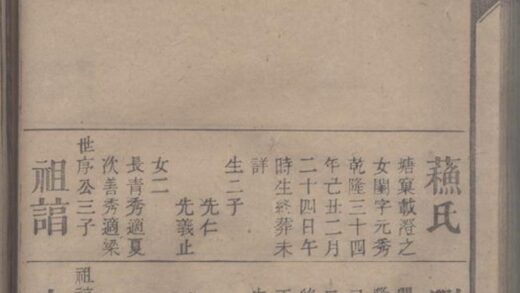 蘓氏
塘載澄之
女字元秀
乾隆三十四
年己丑二月
二十四日午
時生終葬未
詳
生二子
先仁
先義止
女二
長青秀適夏
次善秀適梁
世序公三子
祖
祖